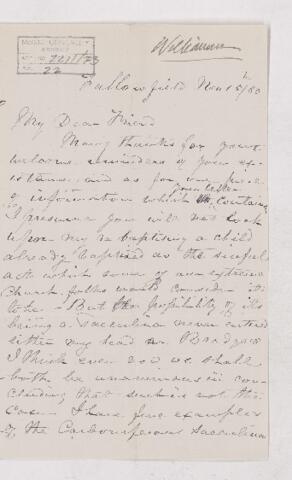 Williamson
22
Fallowfield Nov 15th/80
My Dear Friend
Many thanks for your
welcome reminders of your ex-
istence, and as for one piece
of information which your letter contains
I presume you will not look
upon my re baptising a child
already baptised as the sinful
act which some of our extreme
Church folks would consider it
to be - But the possibility of its
being a Sacculina never entered
either my head or
I think even you we shall
both be unanimous in con-
cluding that such is not the
case. I have five examples
of the Carboniferous Sacculina